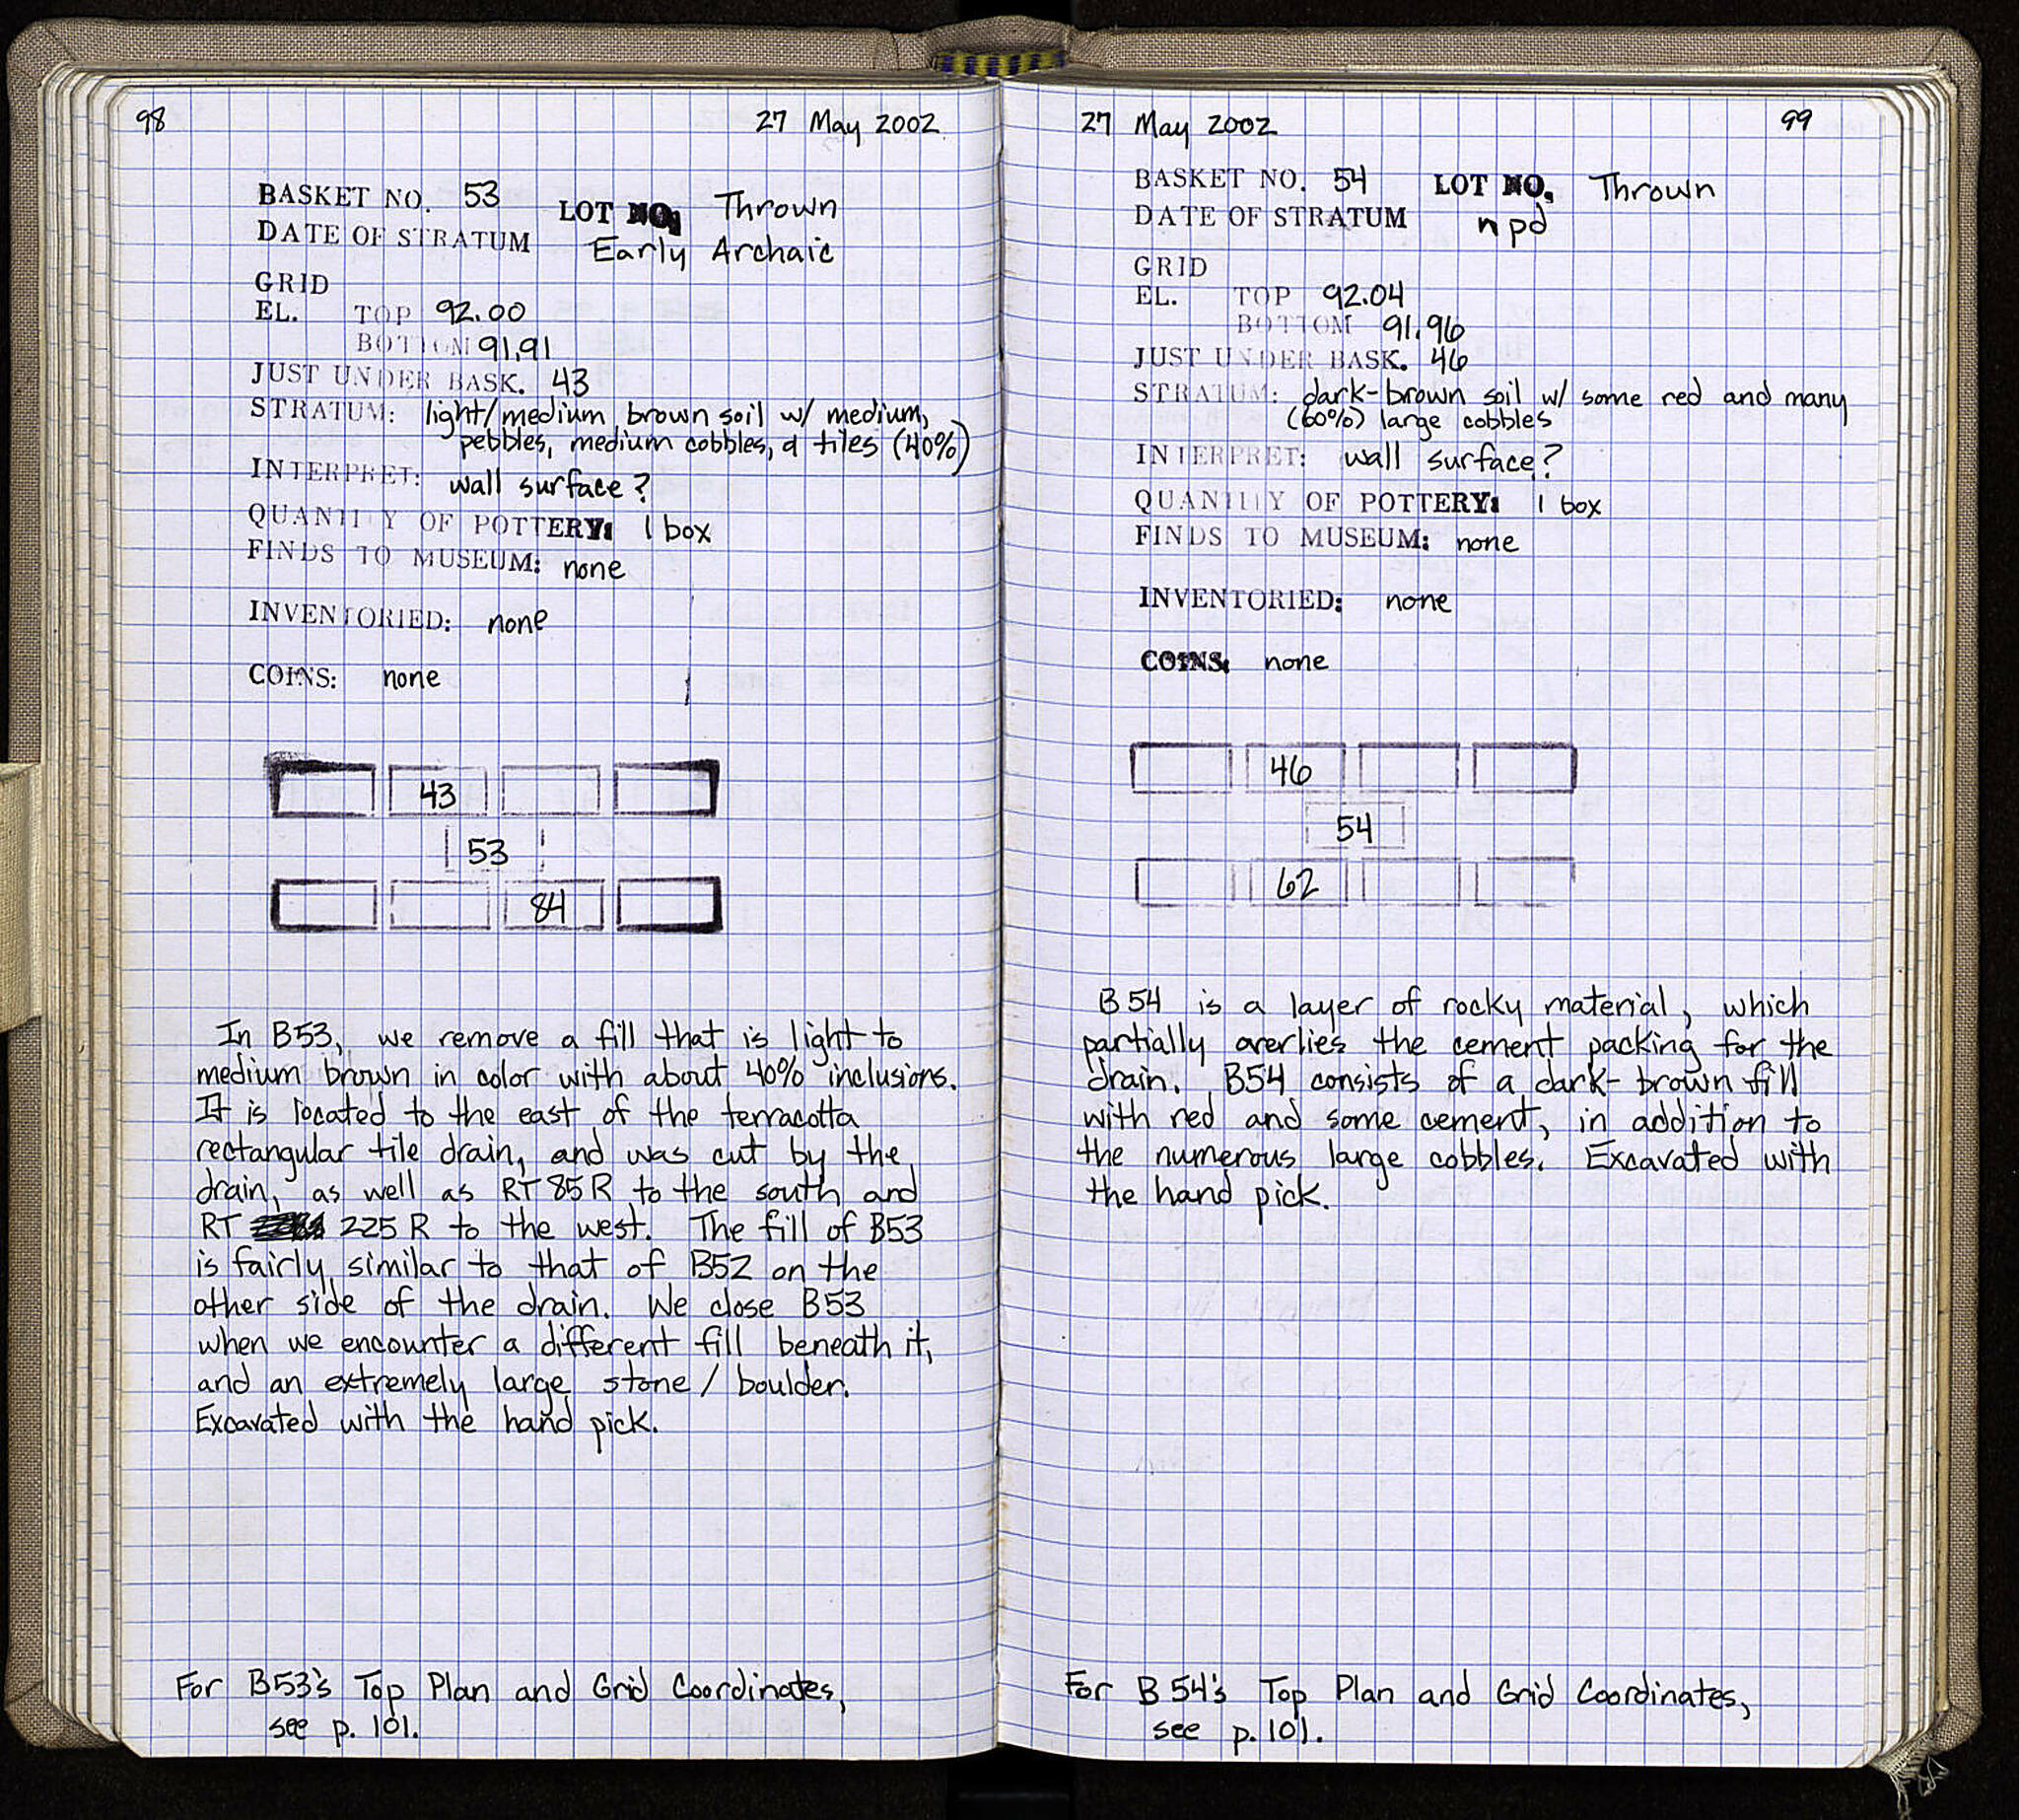 98
27 May 2002
BASKET NO. 53 LOT NO. Thrown
DATE OF STRATUM Early Archaic
GRID
EL. TOP 92.00
BOTTOM 91.91
JUST UNDER BASK. 43
STRATUM: light/medium brown soil w/ medium,
pebbles, medium cobbles, & tiles (40%)
INTERPRET: wall surface?
QUANTITY OF POTTERY: 1 box
FINDS TO MUSEUM: none
INVENTORIED: none
COINS: none
43
53
84
In B53, we remove a fill that is light to
medium brown in color with about 40% inclusions.
It is located to the east of the terracotta
rectangular tile drain, and was cut by the
drain, as well as RT 85 R to the south and
RT 225 R to the west. The fill of B53
is fairly similar to that of B52 on the
other side of the drain. We close B53
when we encounter a different fill beneath it,
and an extremely large stone / boulder.
Excavated with the hand pick.
For B53's Top Plan and Grid Coordinates,
see p. 101.
27 May 2002
99
BASKET NO. 54 LOT NO. Thrown
DATE OF STRATUM npd
GRID
EL. TOP 92.04
BOTTOM 91.96
JUST UNDER BASK. 46
STRATUM: dark-brown soil w/ some red and many
(60%) large cobbles
INTERPRET: wall surface?
QUANTITY OF POTTERY: 1 box
FINDS TO MUSEUM: none
INVENTORIED: none
COINS: none
46
54
62
B54 is a layer of rocky material, which
partially overlies the cement packing for the
drain. B54 consists of a dark-brown fill
with red and some cement, in addition to
the numerous large cobbles. Excavated with
the hand pick.
For B54's Top Plan and Grid Coordinates,
see p. 101.